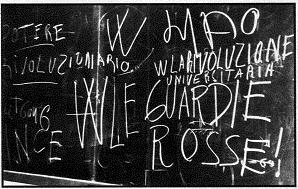 POTERE
RIVOLUZIONARIO
W MAO
W LA RIVOLUZIONE
UNIVERSITARIA
W LE GUARDIE
ROSSE!